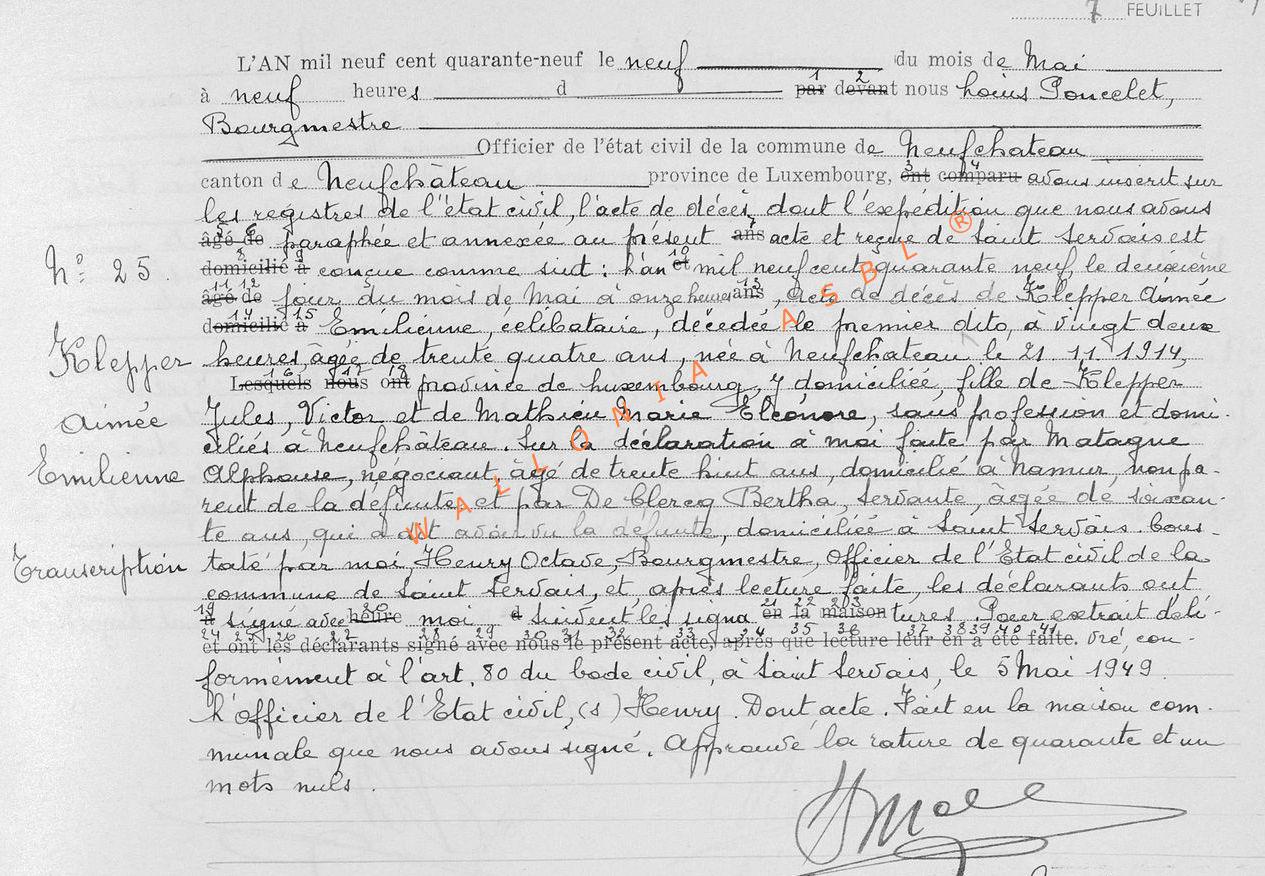 7 FEUILLET
L'AN mil neuf cent quarante-neuf le neuf du mois de Mai
à neuf heures d par devant nous Louis Poncelet,
Bourgmestre
Officier de l'état civil de la commune de Neufchateau
canton de Neufchâteau province de Luxembourg, ont comparu avons inscrit sur
les registres de l'état civil, l'acte de décès, dont l'expédition que nous avons
âgé de paraphée et annexée au présent ans acte et reçue de Saint Servais est
N° 25
domicilié à conçue comme suit : L'an et mil neuf cent quarante neuf, le deuxième
âgé de jour du mois de Mai à onze heures ans, acte de décès de Klepper Aimée
domicilié à Emilienne, célibataire, décédée le premier dito, à vingt deux
Klepper
heures, âgée de trente quatre ans, née à Neufchateau le 21.11.1914,
Lesquels nous ont province de Luxembourg, y domiciliée, fille de Klepper
Aimée
Jules, Victor et de Mathieu Marie Eléonore, sans profession et domi-
ciliés à Neufchâteau. Sur la déclaration à moi faite par Matagne
Emilienne
Alphonse, négociant, âgé de trente huit ans, domicilié à Namur, non pa-
rent de la défunte et par De Clercq Bertha, servante, âgée de soixan-
te ans, qui a dit avoir vu la défunte, domiciliée à Saint Servais. Cons-
Transcription
taté par moi, Henry Octave, Bourgmestre, Officier de l'Etat civil de la
commune de Saint Servais, et après lecture faite, les déclarants ont
à signé avec heure moi, d suivent les signa en la maison tures. Pour extrait déli-
et ont les déclarants signé avec nous le présent acte, après que lecture leur en a été faite. vré, con-
formément à l'art. 80 du Code civil, à Saint Servais, le 5 Mai 1949.
L'Officier de l'Etat civil, (s) Henry. Dont acte. Fait en la maison com-
munale que nous avons signé. Approuvé la rature de quarante et un
mots nuls.
WALLONIA ASBL ®